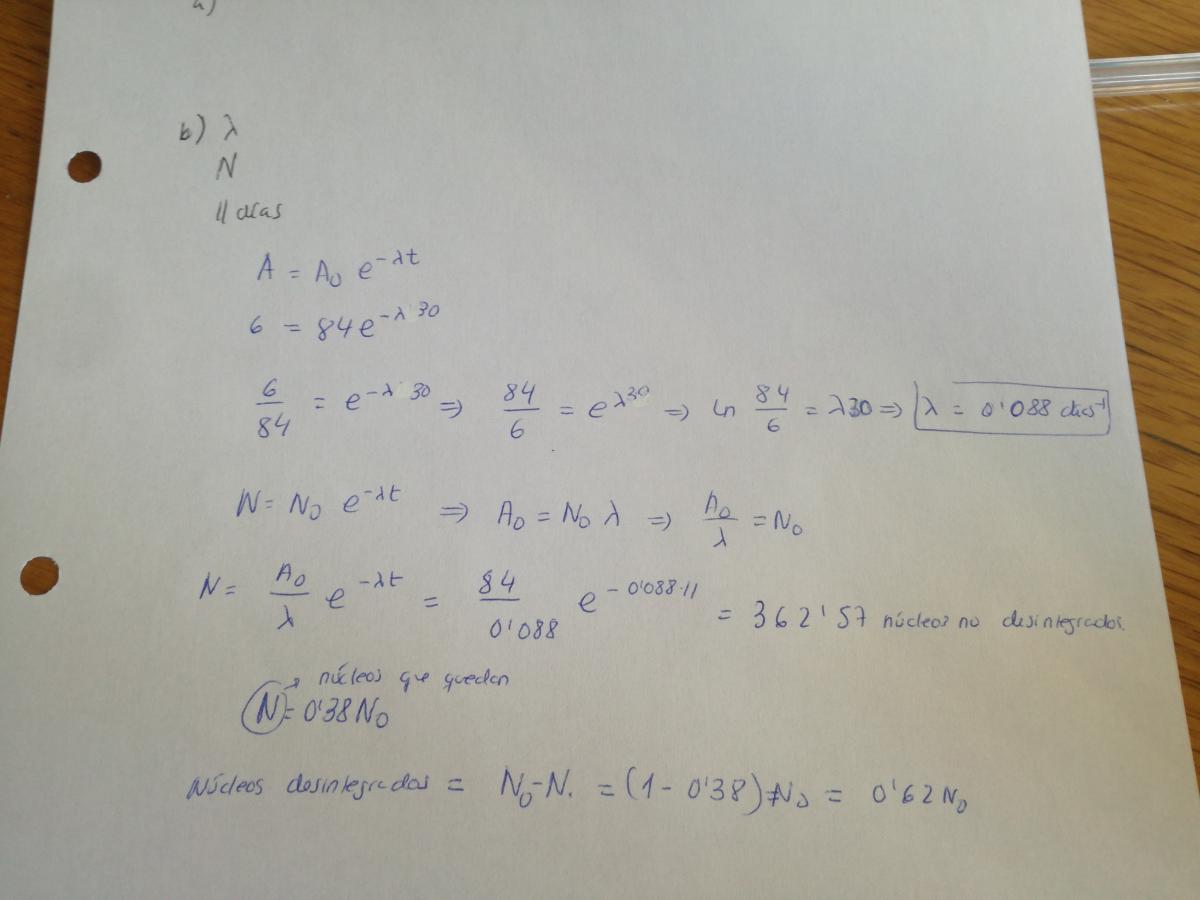 a)
b) λ
N
11 días
A = A₀ e^(-λt)
6 = 84e^(-λ 30)
6/84 = e^(-λ 30) ⇒ 84/6 = e^(λ30) ⇒ Ln 84/6 = λ30 ⇒ λ = 0'088 días⁻¹
N = N₀ e^(-λt) ⇒ A₀ = N₀ λ ⇒ A₀/λ = N₀
N = A₀/λ e^(-λt) = 84/0'088 e^(-0'088·11) = 362'57 núcleos no desintegrados.
→ núcleos que quedan
N = 0'38 N₀
Núcleos desintegrados = N₀-N. = (1 - 0'38) N₀ = 0'62 N₀